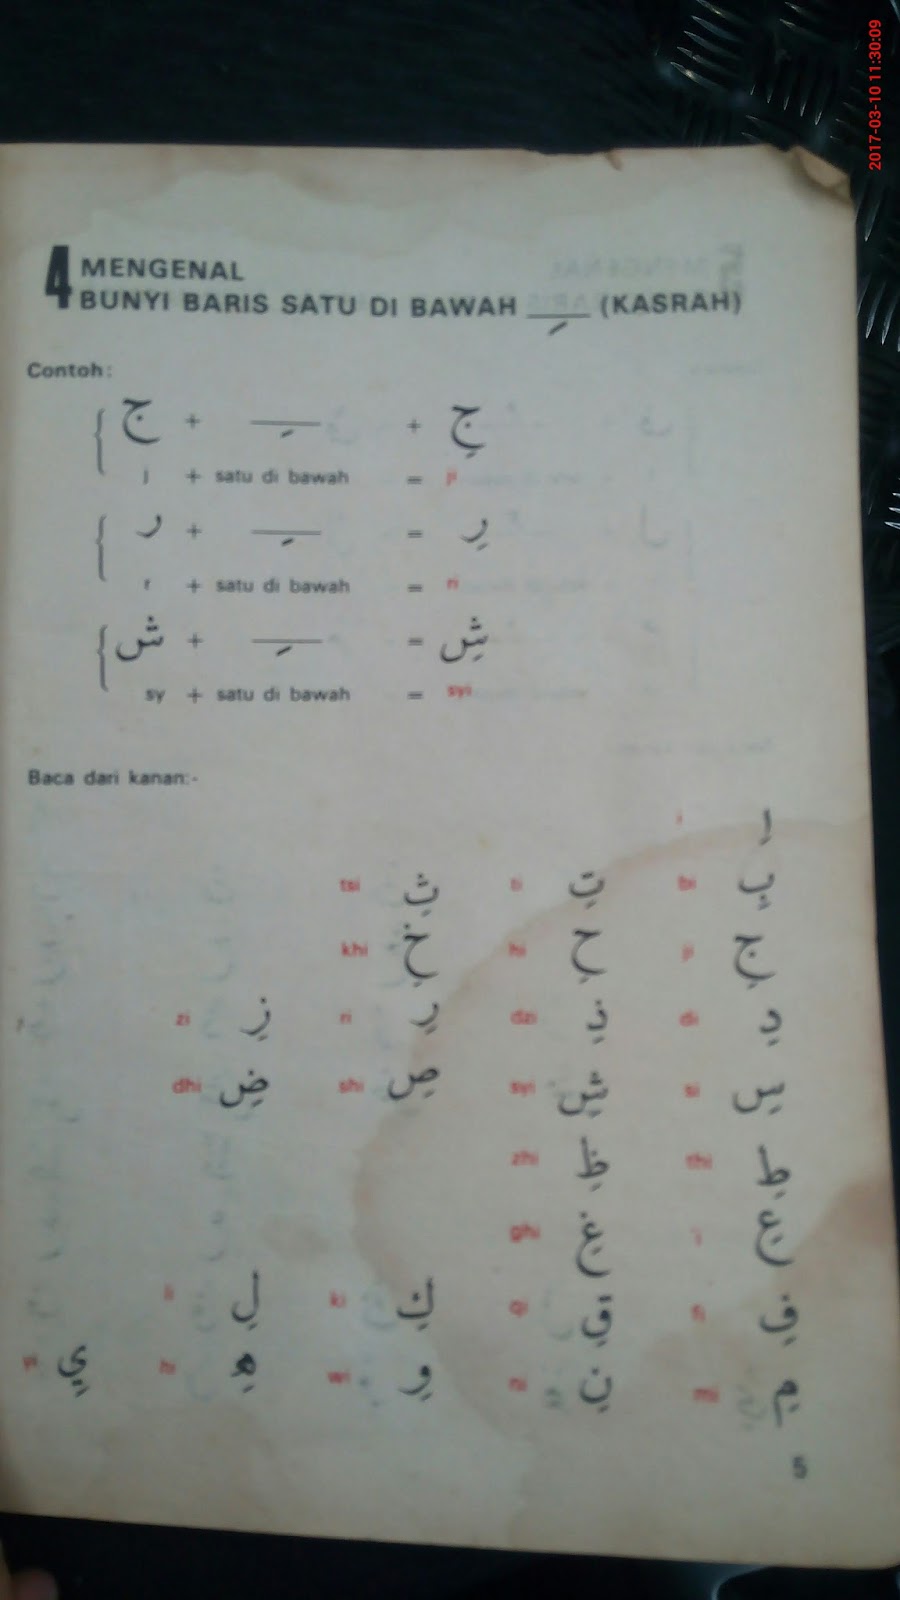 2017-03-10 11:30:09
4 MENGENAL
BUNYI BARIS SATU DI BAWAH ـِ (KASRAH)
Contoh:
ج + ـِ + جِ
j + satu di bawah = ji
ر + ـِ = رِ
r + satu di bawah = ri
ش + ـِ = شِ
sy + satu di bawah = syi
Baca dari kanan:-
اِ i
بِ bi تِ ti ثِ tsi
جِ ji حِ hi خِ khi
دِ di ذِ dzi رِ ri زِ zi
سِ si شِ syi صِ shi ضِ dhi
طِ thi ظِ zhi
عِ غِ ghi
فِ fi قِ qi كِ ki لِ li
مِ mi نِ ni وِ wi هِ hi يِ yi
5